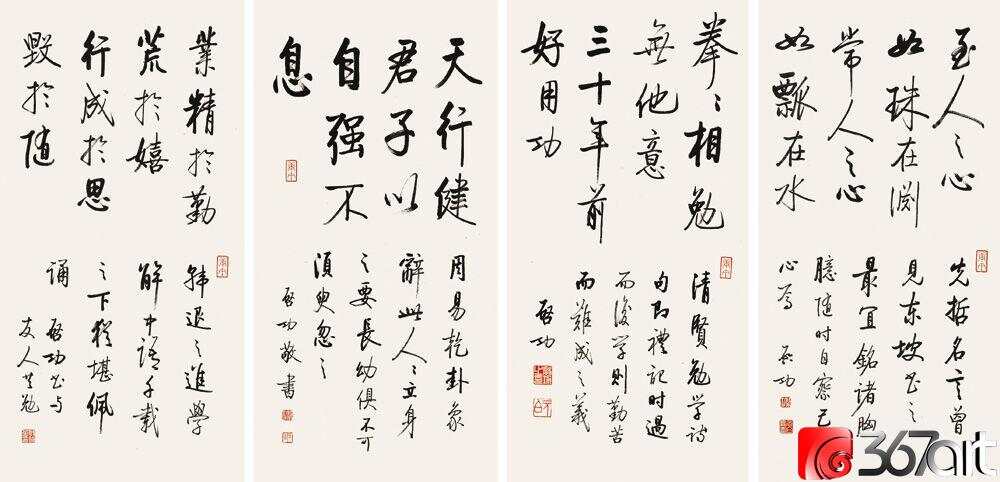 至人之心
如珠在渊
常人之心
如瓢在水
先哲名言曾
見东坡书之
最宜銘諸胸
臆随时自察己
心焉 启功
拳〻相勉
無他意
三十年前
好用功
清賢勉学詩
句即禮記时過
而後学則勤苦
而難成之義
启功
天行健
君子以
自强不
息
用易乾卦象
辭此人〻立身
之要長幼俱不可
須臾忽之
启功敬書
業精於勤
荒於嬉
行成於思
毁於随
韩退之進學
解中語千載
之下猶堪佩
誦
启功书与
友人共勉
367art